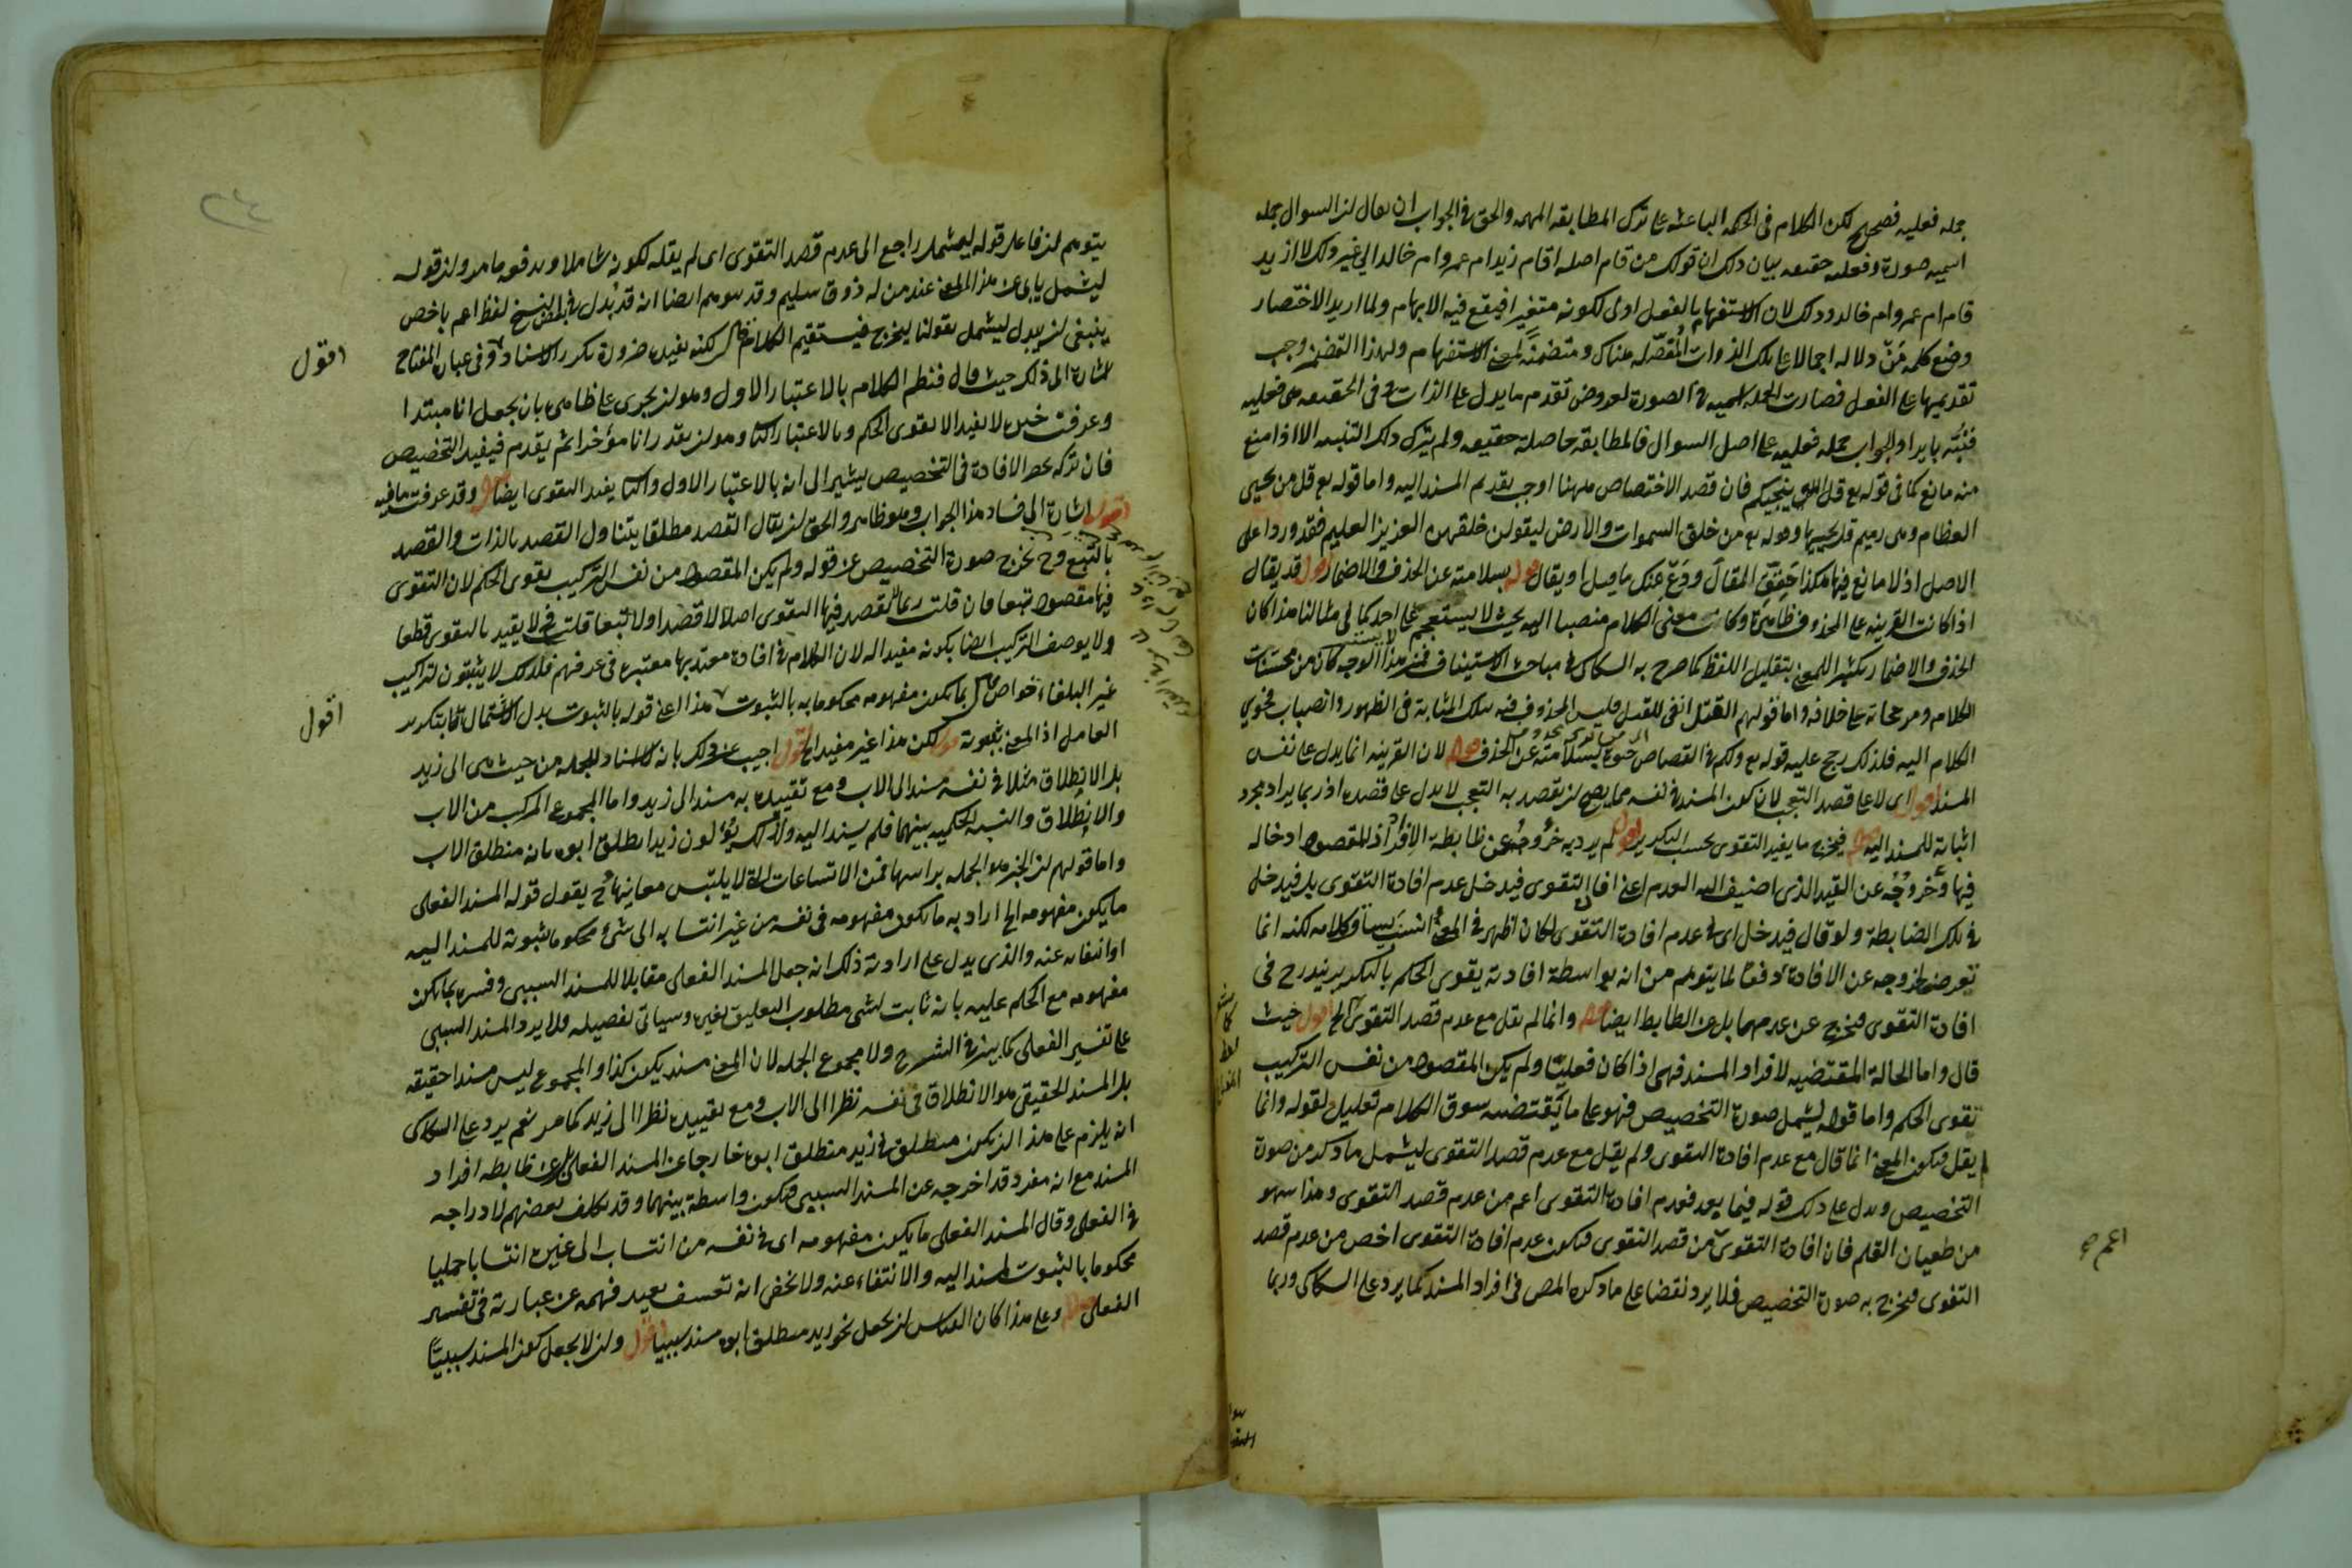 جمله فعليه فصحيح لكن الكلام فى الحكمه الباعثه على ترك المطابقه المهمه والحق فى الجواب ان يقال ان السوال جمله
اسميه صورة وفعليه حقيقه بيان ذلك ان قولك من قام اصله اقام زيد ام عمرو ام خالد الى غير ذلك لا ازيد
قام ام عمرو ام خالد وذلك لان الاستفهام بالفعل اولى لكونه متغيرا فيقع فيه الابهام ولما اريد الاختصار
وضع كلمه مَنْ دلاله اجمالا على تلك الذوات المُفصّله هناك ومتضمنةً لمعنى الاستفهام ولهذا التضمن وجب
تقديمها على الفعل فصارت الجمله اسميه فى الصورة لعروض تقدم ما يدل على الذات وفى الحقيقه هى فعليه
فنُبّه بايراد الجواب جمله فعليه على اصل السوال فالمطابقه حاصلة حقيقه ولم يترك ذلك التنبيه الا اذا منع
منه مانع كما فى قوله تع قل الله ينجيكم فان قصد الاختصاص ههنا اوجب تقديم المسند اليه واما قوله تع قل من يحيى
العظام وهى رميم قل يحييها وقوله تع من خلق السموات والارض ليقولن خلقهن العزيز العليم فقد وردا على
الاصل اذ لا مانع فيهما هكذا حَقِّق المقالَ ودَعْ عنك ما قيل او يقال قوله بسلامته عن الحذف والاضمار اقول قد يقال
اذا كانت القرينه على المحذوف ظاهرة وكان معنى الكلام منصبا اليه بحيث لا يستعجم على احد كما فى مثالنا هذا كان
الحذف والاضمار تكثير المعنى بتقليل اللفظ كما صرح به السكاكى فى مباحث الاستيناف فمن هذا الوجه كان من محسنات
الكلام ومرجحاته على خلافه واما قولهم القتل انفى للقتل فليس المحذوف فيه بتلك المثابة فى الظهور وانصباب فحوى
الكلام اليه فلذلك رجح عليه قوله تع ولكم فى القصاص حيوة بسلامته عن الحذف قوله لان القرينه انما يدل على نفس
المسند اقول اى لا على قصد التعجب لان كون المسند فى نفسه مما يصح ان يقصد به التعجب لا يدل على قصده اذ ربما يراد مجرد
اثباته للمسند اليه قوله فيخرج ما يفيد التقوى بحسب التكرير اقول لم يرد به خروجُهُ عن ضابطة الافراد اذ المقصود ادخاله
فيها وخروجُه عن القيد الذى اضيف اليه العدم اعنى افادة التقوى فيدخل عدم افادة التقوى بل فيدخل
فى تلك الضابطة ولو قال فيدخل اى فى عدم افادة التقوى لكان اظهر فى المعنى وانسب بسياق كلامه لكنه انما
تعرض لخروجه عن الافادة دفعًا لما يتوهم من انه بواسطة افادته يقوى الحكم بالتكرير يندرج فى
افادة التقوى فيخرج عن عدمها بل عن الضابط ايضا قوله وانما لم يقل مع عدم قصد التقوى الخ اقول حيث
قال واما الحالة المقتضيه لافراد المسند فهى اذا كان فعليّا ولم يكن المقصود من نفس التركيب
تقوى الحكم واما قوله ليشمل صورة التخصيص فهو على ما يقتضيه سوق الكلام تعليل لقوله وانما
لم يقل فيكون المعنى انما قال مع عدم افادة التقوى ولم يقل مع عدم قصد التقوى ليشمل ما ذكر من صورة
التخصيص ويدل على ذلك قوله فيما بعد فعدم افادة التقوى اعم من عدم قصد التقوى وهذا سهو
من طغيان القلم فان افادة التقوى من قصد التقوى فيكون عدم افادة التقوى اخص من عدم قصد
التقوى فيخرج به صورة التخصيص فلا يرد نقضا على ما ذكره المص فى افراد المسند كما يرد على السكاكى وربما
اعم صح
يتوهم ان فاعل قوله ليشمل راجع الى عدم قصد التقوى اى لم يقله لكونه شاملا ويدفعه ما مر وان قوله
ليشمل يابى عن هذا المعنى عند من له ذوق سليم وقد يتوهم ايضا انه قد بُدل فى بعض النسخ لفظ اعم باخص
ينبغى ان يبدل ليشمل بقولنا ليخرج فيستقيم الكلام قوله لكنه يفيده ضرورة تكرر الاسناد وفى عبارة المفتاح
اقول
اشارة الى ذلك حيث قال فنظم الكلام بالاعتبار الاول وهو ان يجرى على ظاهره بان يجعل انا مبتدا
وعرفت خبره لا يفيد الا تقوى الحكم وبالاعتبار الثانى وهو ان يقدر انا مؤخرا ثم يقدم فيفيد التخصيص
فان تركه حصر الافادة فى التخصيص يشير الى انه بالاعتبار الاول والثانى يفيد التقوى ايضا قوله وقد عرفت ما فيه
اقول اشارة الى فساد هذا الجواب وهو ظاهر والحق ان يقال القصد مطلقا يتناول القصد بالذات والقصد
بالتبع وح يخرج صورة التخصيص عن قوله ولم يكن المقصود من نفس التركيب تقوى الحكم لان التقوى
فيها مقصود تبعا فان قلت ربما لا يقصد فيها التقوى اصلا لا قصدا ولا تبعا قلت فح لا يقيد بالتقوى قطعا
ولا يوصف التركيب ايضا بكونه مفيدا له لان الكلام فى افادة معتد بها معتبره فى عرفهم فلذلك لا يثبتون لتراكيب
غير البلغاء خواص قوله ما يكون مفهومه محكوما به بالثبوت هذا اعنى قوله بالثبوت بدل الاشتمال قائما بتكرير
اقول
العامل اذ المعنى بثبوته قوله لكن هذا غير مفيد الخ اقول اجيب عن ذلك بانه لا اسناد للجمله من حيث هى الى زيد
بل الانطلاق مثلا فى نفسه مسند الى الاب ومع تقييده به مسند الى زيد واما المجموع المركب من الاب
والانطلاق والنسبه الحكميه بينهما فلم يسند اليه ولذلك يؤلون زيد انطلق ابوه بانه منطلق الاب
واما قولهم ان الخبر هو الجمله براسها فمن الاتساعات التى لا يلتبس معانيها وح يقول قوله المسند الفعلى
ما يكون مفهومه الخ اراد به ما يكون مفهومه فى نفسه من غير انتسابه الى شئ محكوما بثبوته للمسند اليه
او انتفائه عنه والذى يدل على ارادته ذلك انه جعل المسند الفعلى مقابلا للمسند السببى وفسره بما يكون
مفهومه مع الحكم عليه بانه ثابت لشى مطلوب التعليق بغيره وسياتى تفصيله ولا يرد المسند السببى
على تفسير الفعلى كما بين فى الشرح ولا مجموع الجمله لان المعنى مسند يكون كذا والمجموع ليس مسندا حقيقه
بل المسند الحقيقى هو الانطلاق فى نفسه نظرا الى الاب ومع تقييده نظرا الى زيد كما مر نعم يرد على السكاكى
انه يلزم على هذا ان يكون منطلق فى زيد منطلق ابوه خارجا عن المسند الفعلى بل عن ضابطه افراد
المسند مع انه مفرد وقد اخرجه عن المسند السببى فيكون واسطة بينهما وقد تكلف بعضهم لادراجه
فى الفعلى وقال المسند الفعلى ما يكون مفهومه اى فى نفسه من انتساب الى غيره انتسابا جمليا
محكوما بالثبوت للمسند اليه والانتفاء عنه ولا يخفى انه تعسف بعيد فهمه عن عبارته فى تفسير
الفعلى قوله وعلى هذا كان القياس ان يجعل نحو زيد منطلق ابوه مسندا سببيا اقول وان لا يجعل كون المسند سببيًّا